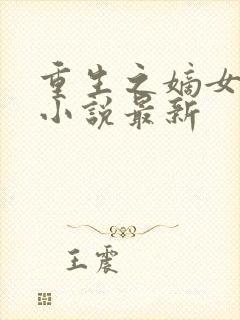 重生之嫡女
小说最新
王震